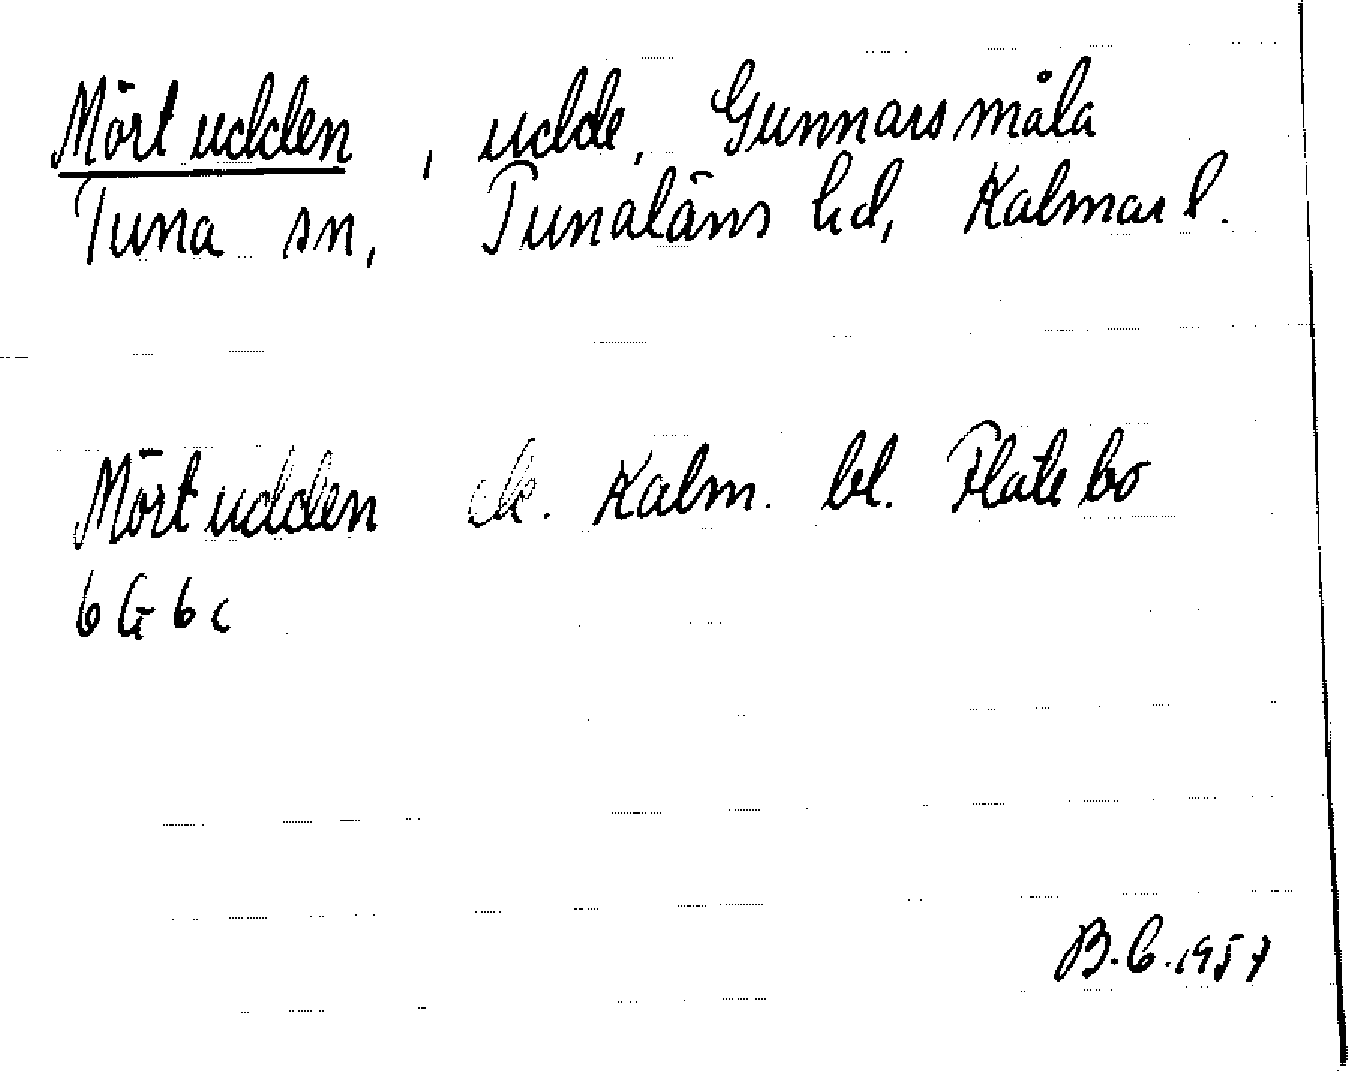 Mörtudden, udde, Gunnarsmåla
Tuna sn, Tunaläns hd, Kalmar l.
Mörtudden ek. Kalm. bl. Flatebo
6 G 6 c
B.C. 1957